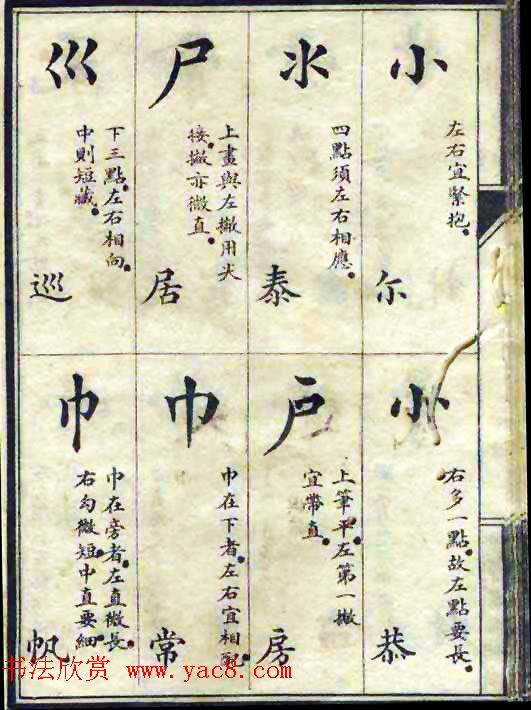 小
左右宜緊抱
尔
氺
四點須左右相應
泰
尸
上畫與左撇用尖
接撇亦微直
居
巛
下三點左右相向
中則短藏
巡
⺗
右多一點故左點要長
恭
戶
上筆平左第一撇
宜帶直
房
巾
巾在下者左右宜相配
常
巾
巾在旁者左直微長
右勾微短中直要細
帆
书法欣赏 www.yac8.com